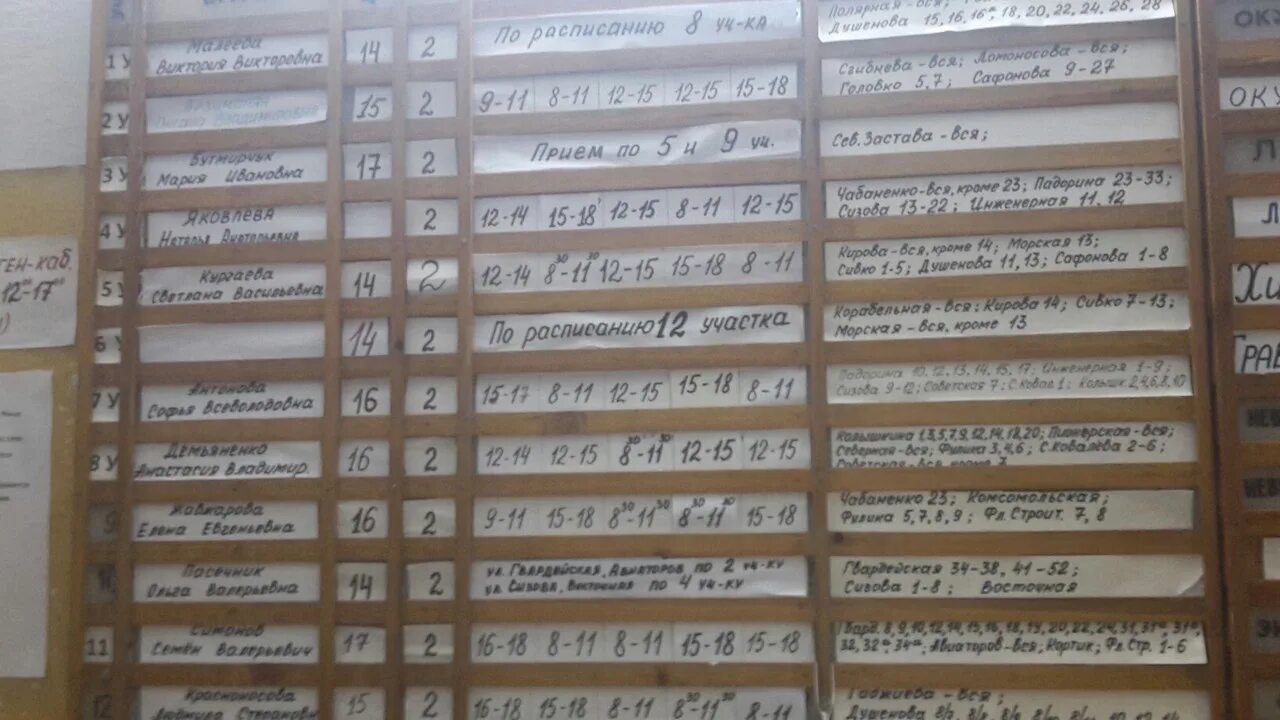 Полярная-вся;
Душенова 15, 16, 16а, 18, 20, 22, 24, 26, 28
1 У Малеева Виктория Викторовна 14 2 По расписанию 8 уч-ка
Сгибнева-вся; Ломоносова-вся;
Головко 5,7; Сафонова 9-27
2 У Владимировна 15 2 9-11 8-11 12-15 12-15 15-18
Сев.Застава-вся;
3 У Бутмирчук Мария Ивановна 17 2 Прием по 5 и 9 уч.
Чабаненко-вся, кроме 23; Падорина 23-33;
Сизова 13-22; Инженерная 11, 12
4 У Яковлева Наталья Анатольевна 2 12-14 15-18 12-15 8-11 12-15
Кирова-вся, кроме 14; Морская 13;
Сивко 1-5; Душенова 11, 13; Сафонова 1-8
5 У Кургаева Светлана Васильевна 14 2 12-14 8³⁰-11³⁰ 12-15 15-18 8-11
Корабельная-вся; Кирова 14; Сивко 7-13;
Морская-вся, кроме 13
6 У 14 2 По расписанию 12 участка
Падорина 10, 12, 13, 14, 15, 17; Инженерная 1-9;
Сизова 9-12; Советская 7; С.Ковал. 1; Колышк. 2,4,6,8,10
7 У Антонова Софья Всеволодовна 16 2 15-17 8-11 12-15 15-18 8-11
Колышкина 1,3,5,7,9,12,14,18,20; Пионерская-вся;
Северная-вся; Фулика 3,4,6; С.Ковалева 2-6;
Советская-вся, кроме 7
8 У Демьяненко Анастасия Владимир. 16 2 12-14 12-15 8³⁰-11³⁰ 12-15 12-15
Чабаненко 23; Комсомольская;
Фулика 5,7,8,9; Фл.Строит. 7,8
9 Жавжарова Елена Евгеньевна 16 2 9-11 15-18 8³⁰-11³⁰ 8³⁰-11³⁰ 15-18
Гвардейская 34-38, 41-52;
Сизова 1-8; Восточная
Пасечник Ольга Валерьевна 14 2 ул. Гвардейская, Авиаторов по 2 уч-ку
ул. Сизова, Восточная по 4 уч-ку
Гвард. 8, 9, 10, 12, 14, 15, 16, 18, 19, 20, 22, 24, 31, 31а, 31б,
32, 32а, 34а; Авиаторов-вся; Кортик; Фл.Стр. 1-6
11 Симонов Семён Валерьевич 17 2 16-18 8-11 8-11 15-18 15-18
Гаджиева-вся;
12 Красноносова Людмила Степановн 15 2 16-18 15-18 8-11 8³⁰-11³⁰ 8-11
ГЕН-каб.
12⁰⁰-17⁰⁰
ОКУ
ОКУ
Л
Л
Хи
ГРАВ
НЕВ
НЕВ